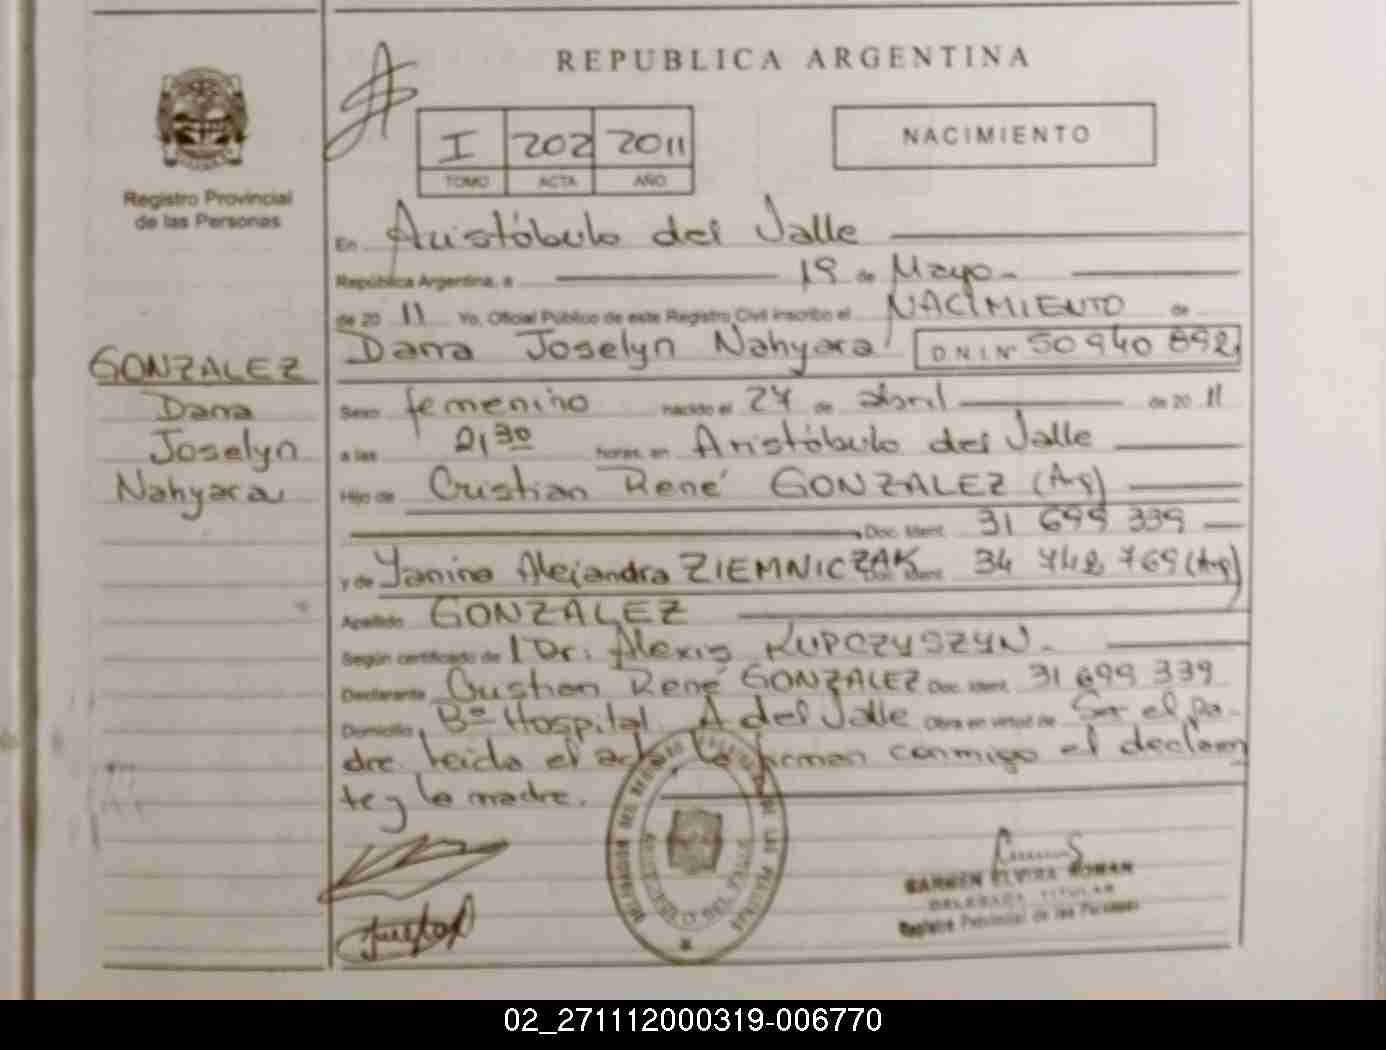 REPUBLICA ARGENTINA
I 202 2011
TOMO ACTA AÑO
NACIMIENTO
Registro Provincial
de las Personas
En Aristóbulo del Valle
República Argentina, a 19 de Mayo
de 20 11 Yo, Oficial Público de este Registro Civil inscribo el NACIMIENTO de
Danna Joselyn Nahyara DNI Nº 50 940 892
GONZALEZ
Danna
Joselyn
Nahyara
Sexo femenino nacido el 27 de abril de 20 11
a las 21,30 horas, en Aristóbulo del Valle
Hijo de Cristian René GONZALEZ (Arg)
Doc. Ident. 31 699 339
y de Yanina Alejandra ZIEMNICZAK Doc. Ident. 34 748 769 (Arg)
Apellido GONZALEZ
Según certificado de Dr. Alexis KUPCZYSZYN.
Declarante Cristian René GONZALEZ Doc. Ident. 31 699 339
Domicilio Bº Hospital A del Valle Obra en virtud de Ser el pa-
dre leida el acta la firman conmigo el declaran
te y la madre.
CARMEN ELVIRA ROMAN
DELEGADA TITULAR
Registro Provincial de las Personas
02_271112000319-006770